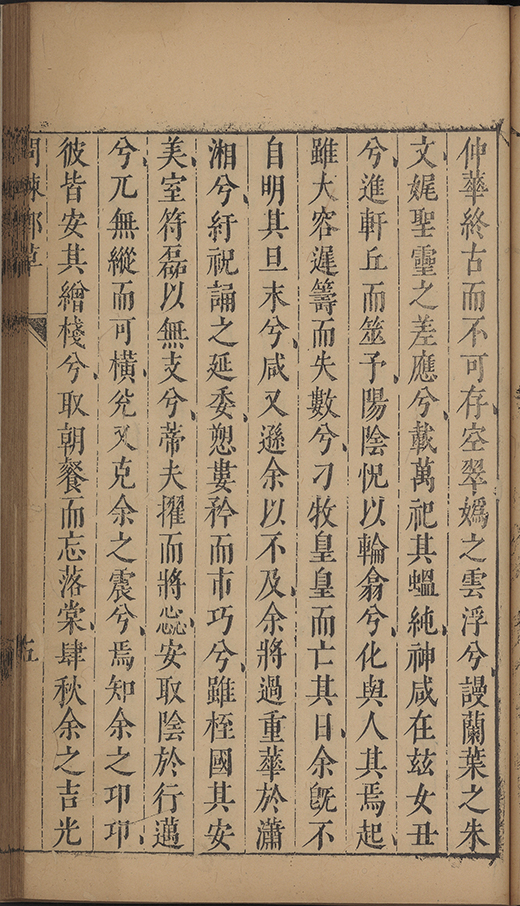 仲華終古而不可存、空翠嬀之雲浮兮、謾蘭葉之朱
文、娓聖靈之差應兮、載萬祀其蝹純、神咸在玆女丑
兮、進軒丘而筮予、陽陰怳以輪翕兮、化與人其焉起、
雖大容遲籌而失數兮、刁牧皇皇而亡其日、余旣不
自明其旦末兮、咸又遜余以不及、余將過重華於瀟
湘兮、紆祝誦之延委、愬婁矜而市巧兮、雖桎國其安
美、室符磊以無支兮、蒂夫擢而將惢、安取陰於行邁
兮、兀無縱而可橫、兊又克余之震兮、焉知余之卭卭、
彼皆安其繒棧兮、取朝餐而忘落棠、肆秋余之吉光